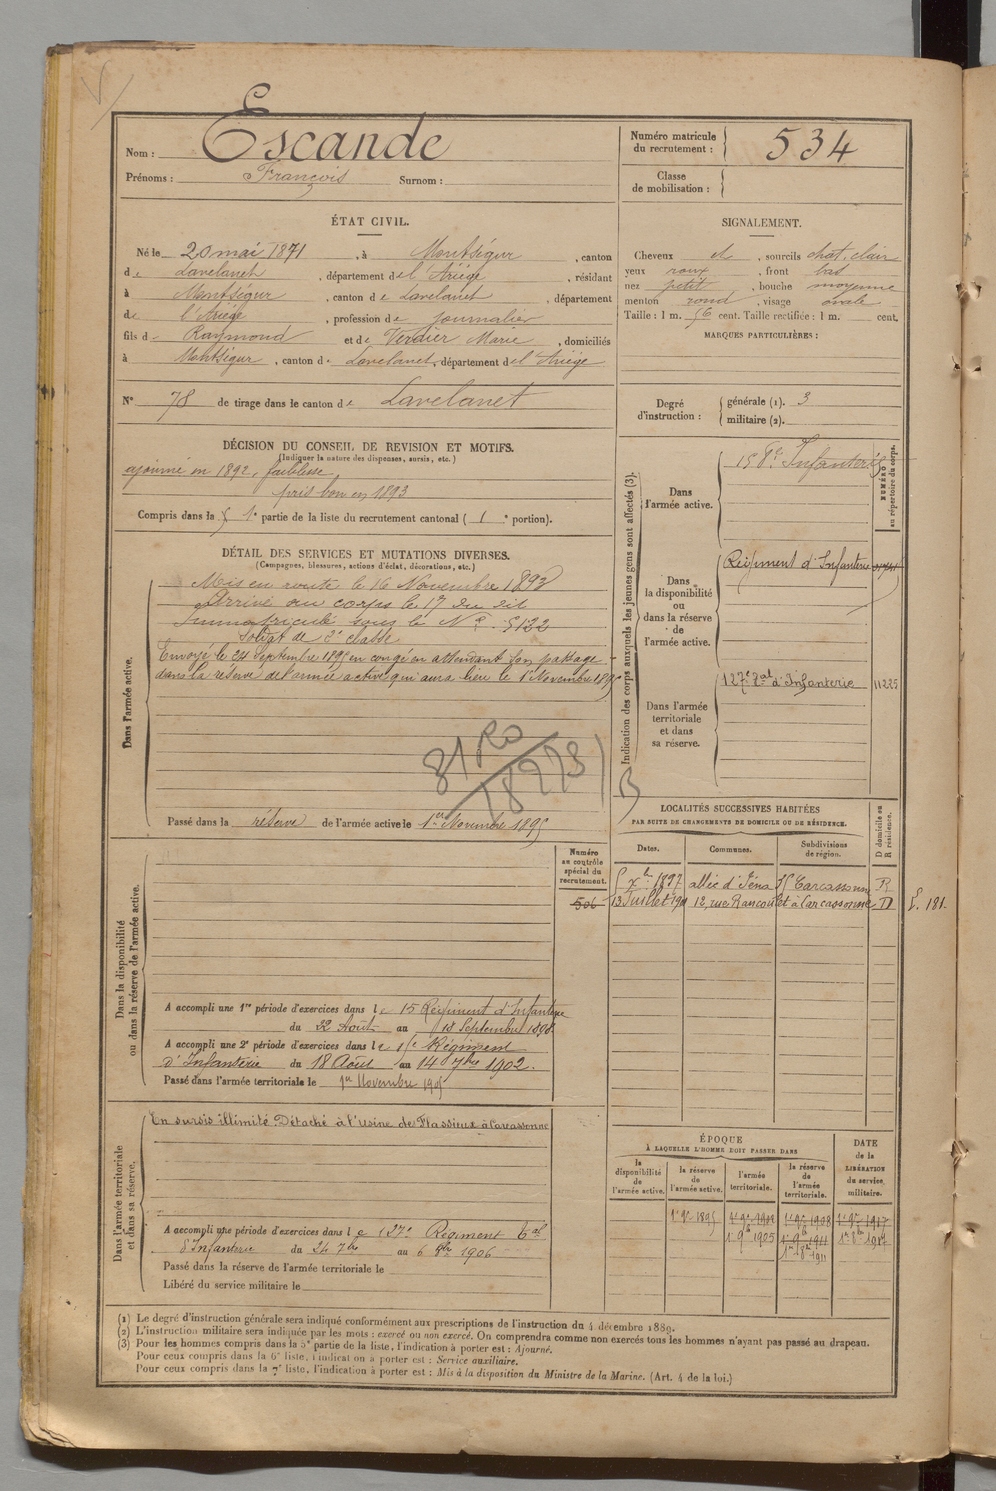 Nom : Escande
Prénoms : François Surnom :
Numéro matricule du recrutement : 534
Classe de mobilisation :
ÉTAT CIVIL.
Né le 20 mai 1871, à Montségur, canton
de Lavelanet, département de l'Ariège, résidant
à Montségur, canton de Lavelanet, département
de l'Ariège, profession de journalier
fils de Raymond et de Verdier Marie, domiciliés
à Montségur, canton de Lavelanet, département de l'Ariège
N° 78 de tirage dans le canton de Lavelanet
SIGNALEMENT.
Cheveux et, sourcils chat. clair
yeux roux, front bas
nez petit, bouche moyenne
menton rond, visage ovale
Taille : 1 m. 56 cent. Taille rectifiée : 1 m. cent.
MARQUES PARTICULIÈRES :
Degré d'instruction : générale (1). 3
militaire (2).
DÉCISION DU CONSEIL DE REVISION ET MOTIFS.
(Indiquer la nature des dispenses, sursis, etc.)
ajourné en 1892, faiblesse,
pris bon en 1893
Compris dans la 1e partie de la liste du recrutement cantonal (1e portion).
DÉTAIL DES SERVICES ET MUTATIONS DIVERSES.
(Campagnes, blessures, actions d'éclat, décorations, etc.)
Dans l'armée active.
Mis en route le 16 Novembre 1893
Arrivé au corps le 17 du dit
Immatriculé sous le N° 5122
Soldat de 2e classe
Envoyé le 24 Septembre 1895 en congé en attendant son passage
dans la réserve de l'armée active qui aura lieu le 1er Novembre 1895
81 Ro
18273
Passé dans la réserve de l'armée active le 1er Novembre 1895
Indication des corps auxquels les jeunes gens sont affectés (3).
NUMÉRO au répertoire du corps.
Dans l'armée active.
15 8e Infanterie
Dans la disponibilité ou dans la réserve de l'armée active.
Régiment d'Infanterie
Dans l'armée territoriale et dans sa réserve.
127e Ral d'Infanterie 11225
LOCALITÉS SUCCESSIVES HABITÉES
PAR SUITE DE CHANGEMENTS DE DOMICILE OU DE RÉSIDENCE.
Dates. Communes. Subdivisions de région. D domicile ou R résidence.
5 Xbre 1897 allée d'Iéna 35 Carcassonne R
13 Juillet 1901 12, rue Rancoulet à Carcassonne D
f. 181.
Dans la disponibilité ou dans la réserve de l'armée active.
Numéro au contrôle spécial du recrutement.
506
A accompli une 1re période d'exercices dans le 15 Régiment d'Infanterie
du 22 Août au 18 Septembre 1898
A accompli une 2e période d'exercices dans le 15e Régiment
d'Infanterie du 18 Août au 14 7bre 1902.
Passé dans l'armée territoriale le 1er Novembre 1905
Dans l'armée territoriale et dans sa réserve.
En sursis illimité. Détaché à l'usine de Plassieux à Carcassonne
A accompli une période d'exercices dans le 127e Régiment Tal
d'Infanterie du 24 7bre au 6 8bre 1906
Passé dans la réserve de l'armée territoriale le
Libéré du service militaire le
ÉPOQUE
À LAQUELLE L'HOMME DOIT PASSER DANS
la disponibilité de l'armée active. la réserve de l'armée active. l'armée territoriale. la réserve de l'armée territoriale.
DATE de la LIBÉRATION du service militaire.
1er 9bre 1895
1er 9bre 1905
(1) Le degré d'instruction générale sera indiqué conformément aux prescriptions de l'instruction du 4 décembre 1889.
(2) L'instruction militaire sera indiquée par les mots : exercé ou non exercé. On comprendra comme non exercés tous les hommes n'ayant pas passé au drapeau.
(3) Pour les hommes compris dans la 5e partie de la liste, l'indication à porter est : Ajourné.
Pour ceux compris dans la 6e liste, l'indication à porter est : Service auxiliaire.
Pour ceux compris dans la 7e liste, l'indication à porter est : Mis à la disposition du Ministre de la Marine. (Art. 4 de la loi.)